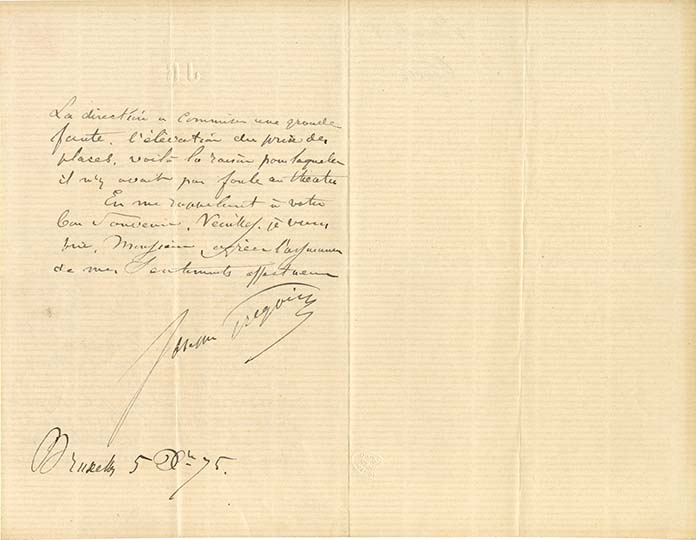 La direction a commises une grande
faute, l'élévation du prix des
places, voilà la raison pour laquelle
il n'y avait pas foule au theatre
En me rappelant à votre
bon Souvenir, Veuillez, je vous
prie, Monsieur agréer l'assurance
de mes Sentiments affectueux
Joseph Grégoir
Bruxelles 5 Xbr 75.